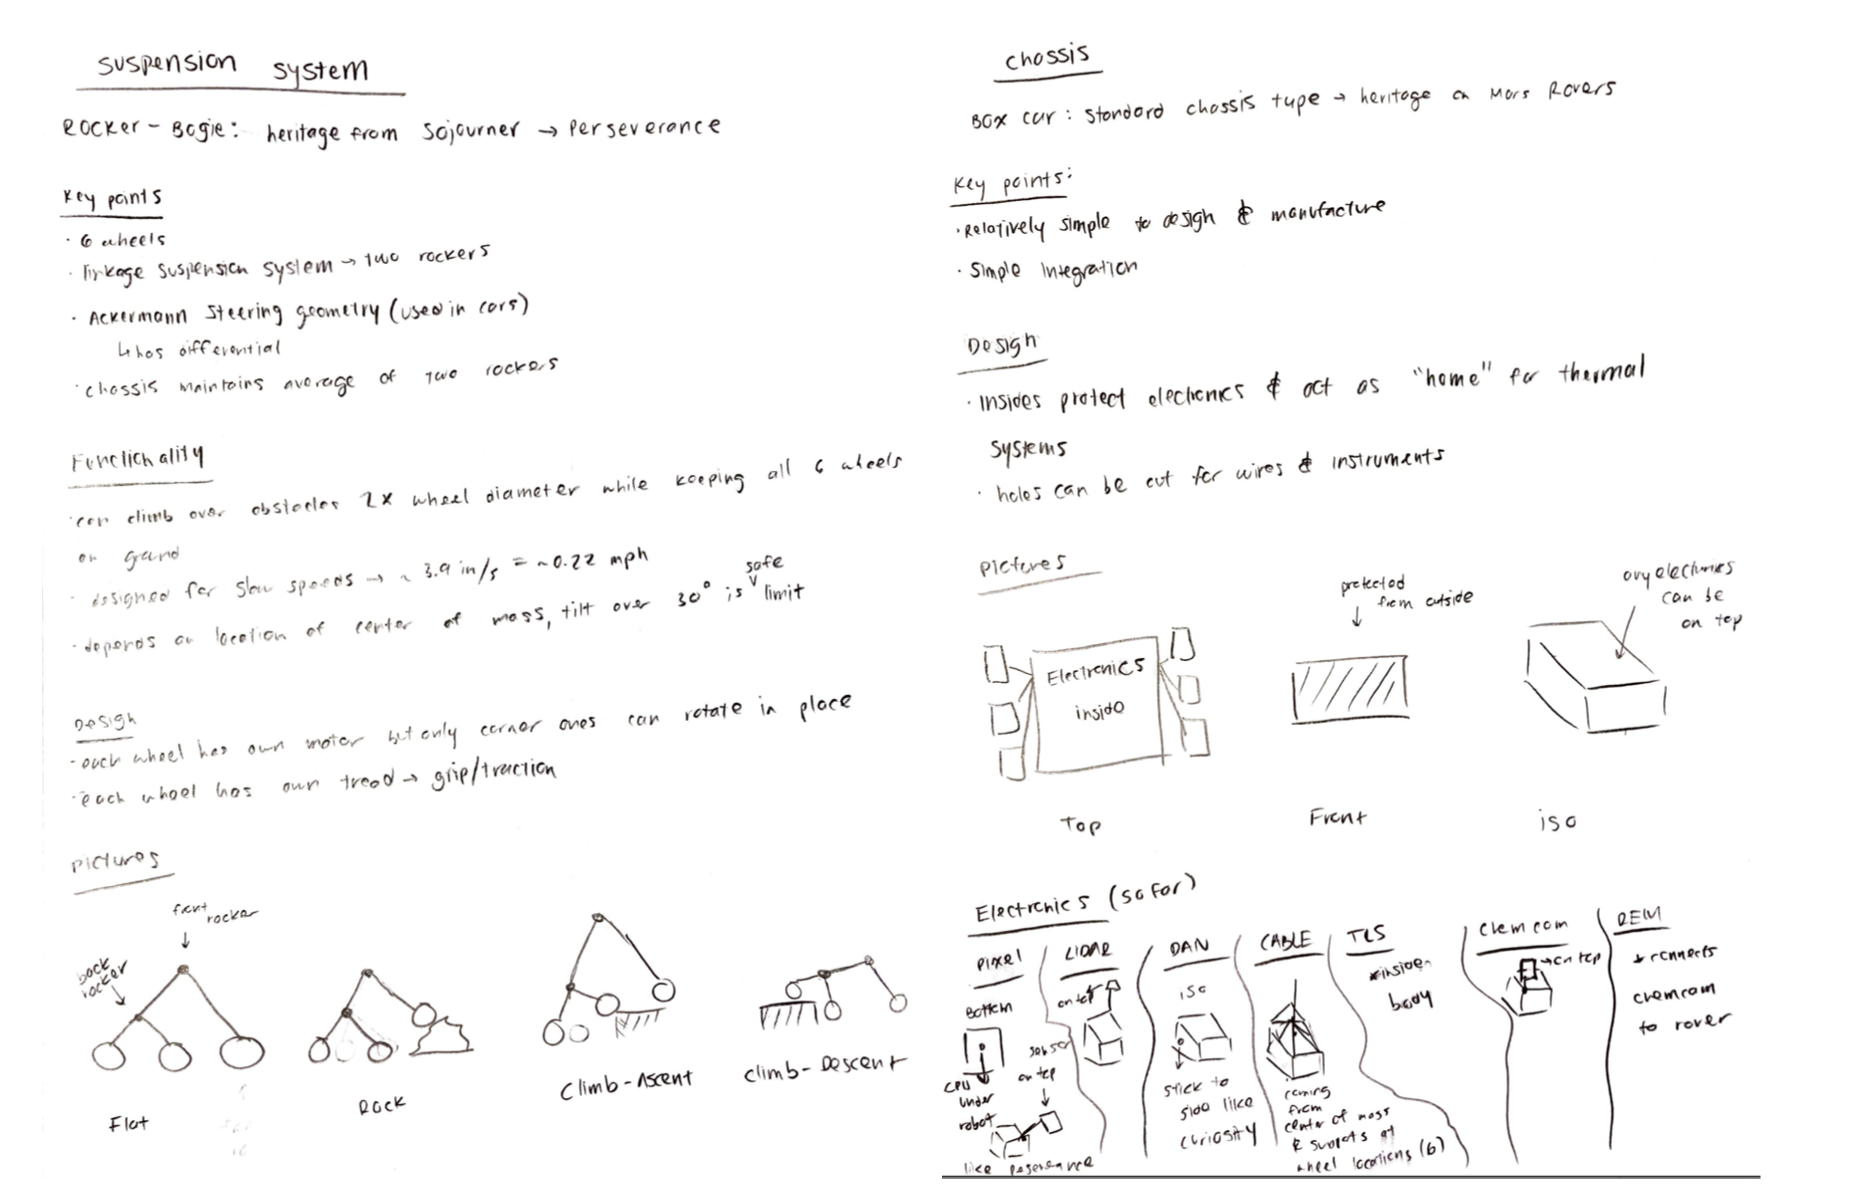 suspension system
Rocker-Bogie: heritage from Sojourner → Perseverance
Key points
· 6 wheels
· linkage suspension system → two rockers
· Ackermann Steering geometry (used in cars)
↳ has differential
· chassis maintains average of two rockers
Functionality
· can climb over obstacles 2x wheel diameter while keeping all 6 wheels
on ground
· designed for slow speeds → ~ 3.9 in/s = ~0.22 mph
· depends on location of center of mass, tilt over 30° is safe limit
Design
· each wheel has own motor but only corner ones can rotate in place
· each wheel has own tread → grip/traction
Pictures
front rocker
back rocker
Flat
Rock
Climb-Ascent
Climb-Descent
Chassis
Box car: standard chassis type → heritage on Mars Rovers
Key points:
· Relatively simple to design & manufacture
· Simple integration
Design
· Insides protect electronics & act as "home" for thermal
systems
· holes can be cut for wires & instruments
Pictures
Electronics
inside
Top
protected
from outside
Front
electronics
can be
on top
iso
Electronics (so far)
Pixel
Bottom
CPU
under
robot
sensor
on top
like perserverance
LIDAR
on top
DAN
iso
stick to
side like
curiosity
CABLE
coming
from
center of mass
& supports at
wheel locations (6)
TLS
inside
body
Chemcam
→ on top
REM
connects
chemcam
to rover